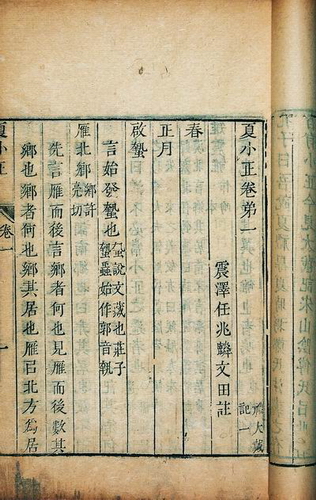 夏小正卷第一
震澤任兆麟文田註
大戴
記一
春
正月
啟蟄
言始發蟄也
蟄說文藏也莊子
蟄蟲始作郭音執
雁北鄉
鄉許
亮切
先言雁而後言鄉者何也見雁而後數其
鄉也鄉者何也鄉其居也雁㠯北方為居
夏小正
卷一
一